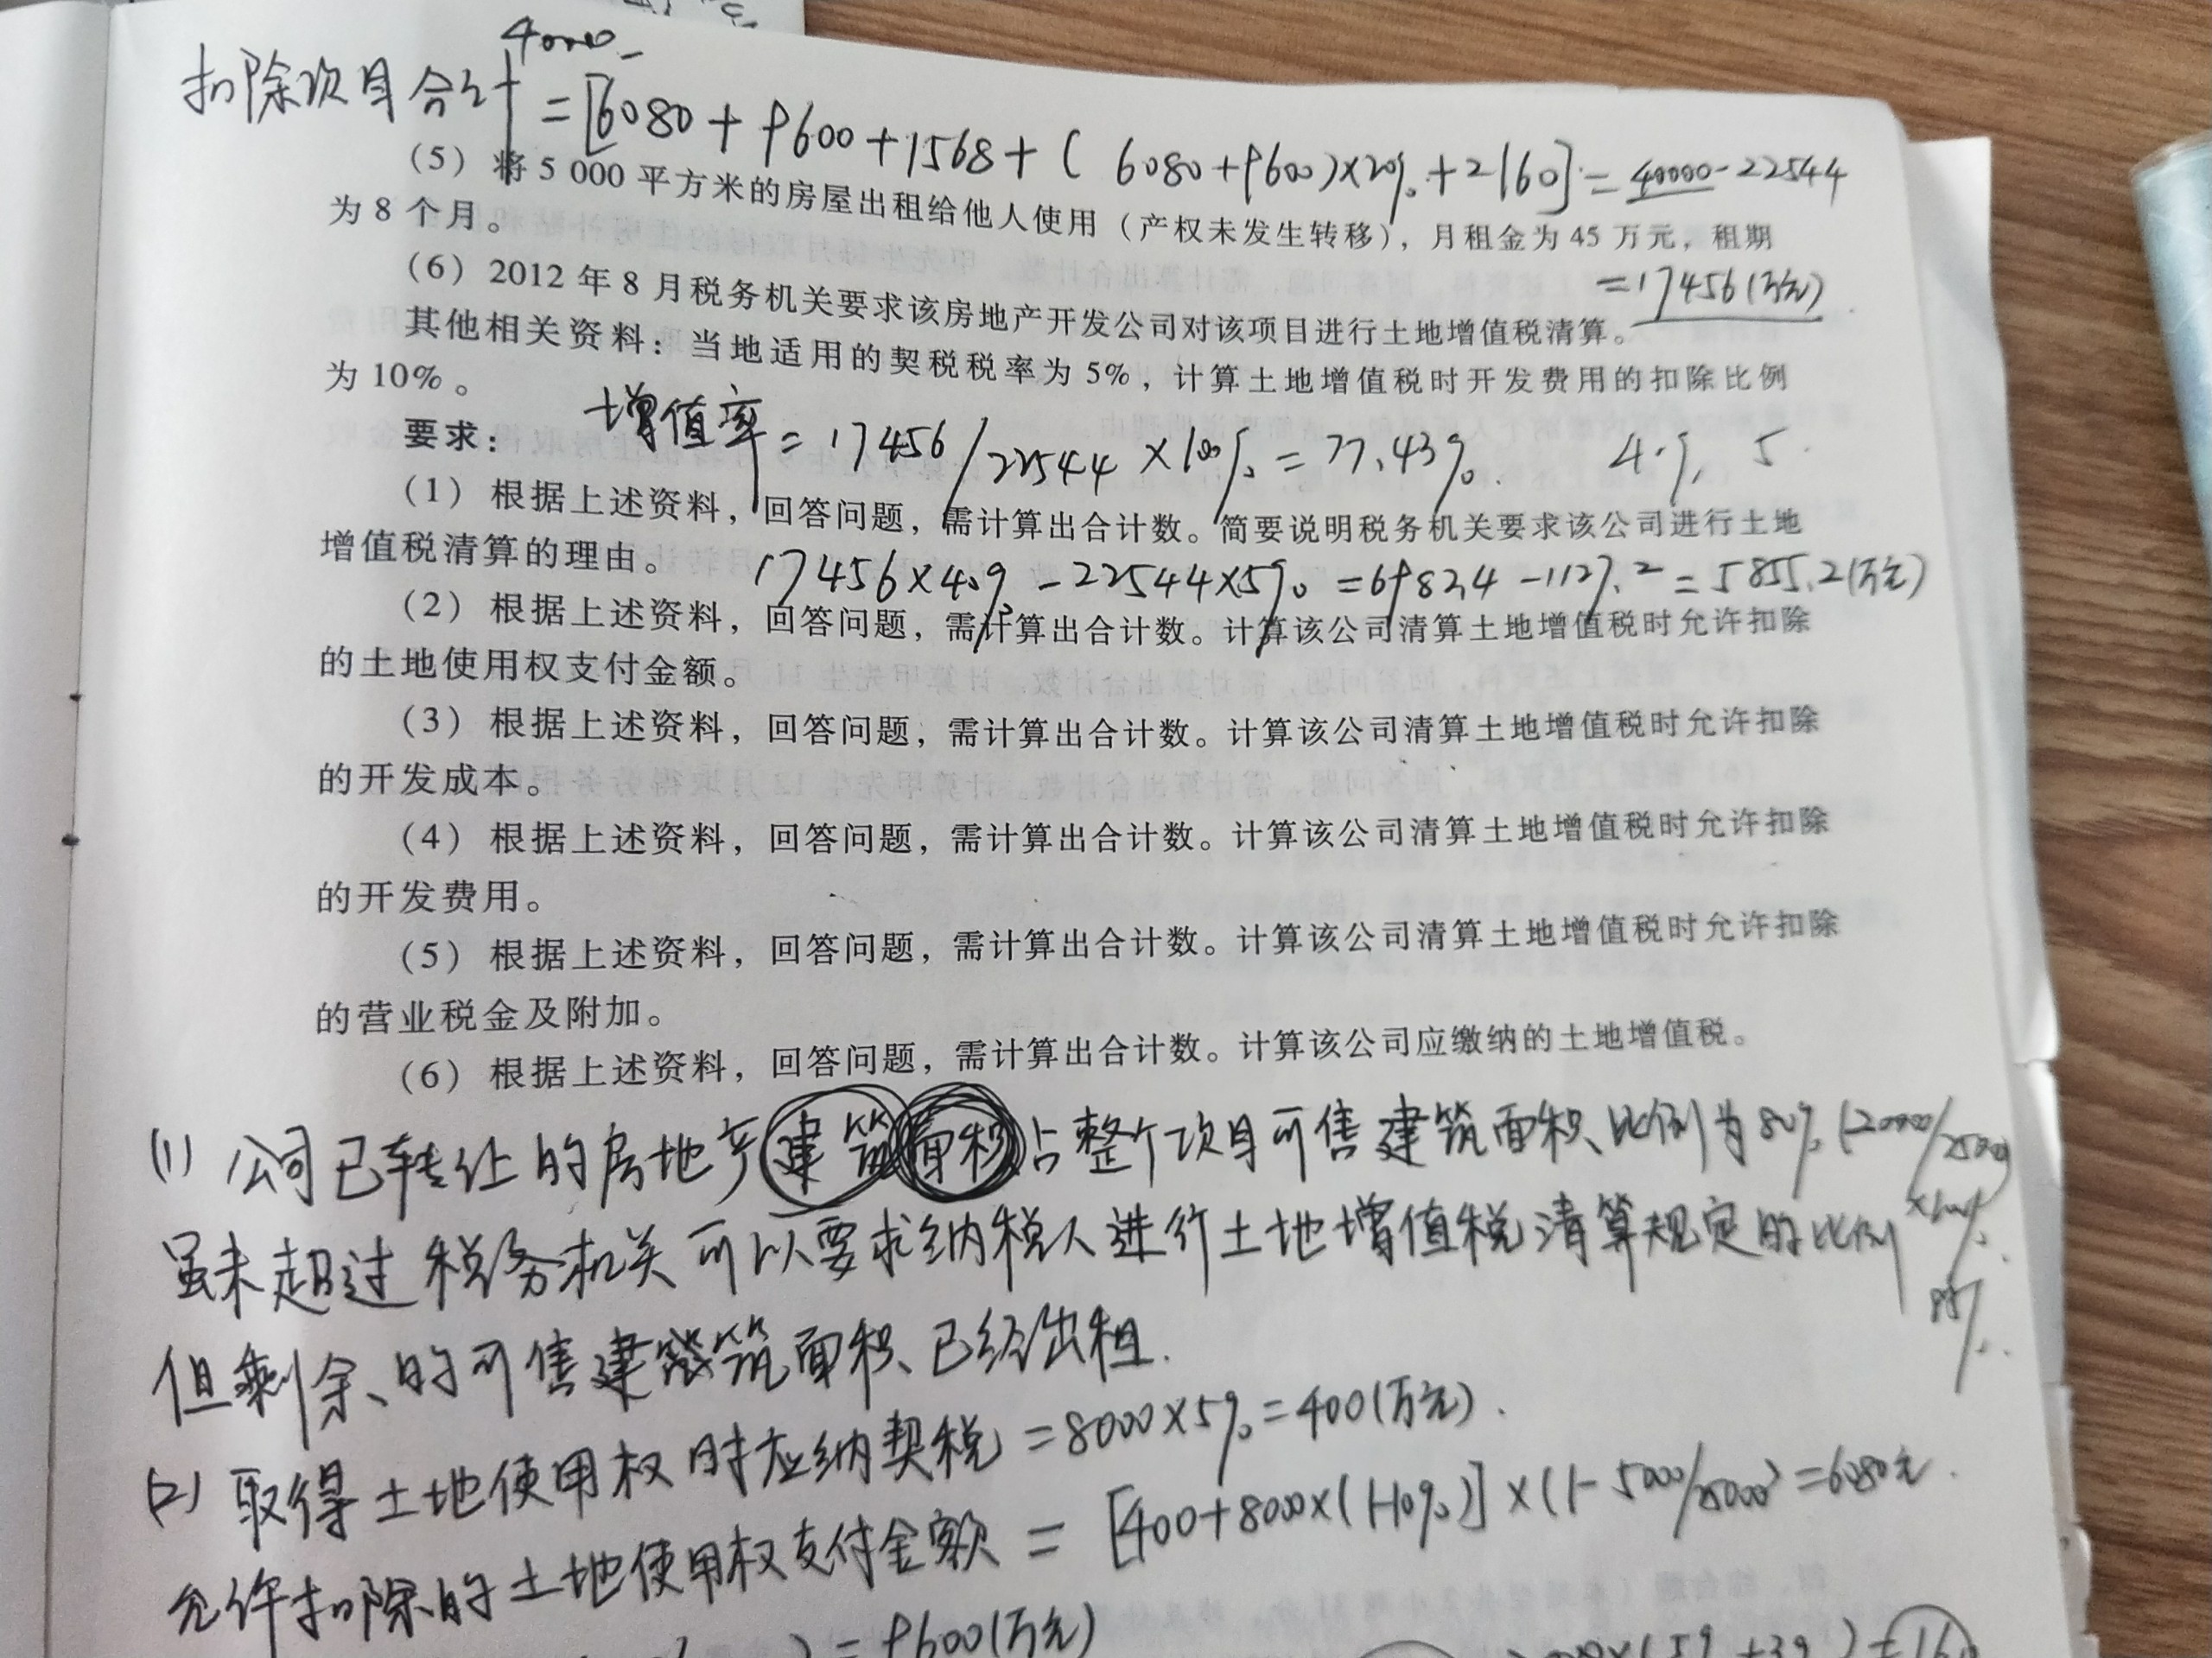 4000-
扣除项目合计=[6080+9600+1568+(6080+9600)×20%+2160]=40000-22544
(5) 将5 000平方米的房屋出租给他人使用（产权未发生转移），月租金为45万元，租期
为8个月。
=17456(万元)
(6) 2012年8月税务机关要求该房地产开发公司对该项目进行土地增值税清算。
其他相关资料：当地适用的契税税率为5%，计算土地增值税时开发费用的扣除比例
为10%。
增值率=17456/22544×100%=77.43% 4% 5
要求：
(1) 根据上述资料，回答问题，需计算出合计数。简要说明税务机关要求该公司进行土地
增值税清算的理由。
17456×40%-22544×5%=6982.4-1127.2=5855.2(万元)
(2) 根据上述资料，回答问题，需计算出合计数。计算该公司清算土地增值税时允许扣除
的土地使用权支付金额。
(3) 根据上述资料，回答问题，需计算出合计数。计算该公司清算土地增值税时允许扣除
的开发成本。
(4) 根据上述资料，回答问题，需计算出合计数。计算该公司清算土地增值税时允许扣除
的开发费用。
(5) 根据上述资料，回答问题，需计算出合计数。计算该公司清算土地增值税时允许扣除
的营业税金及附加。
(6) 根据上述资料，回答问题，需计算出合计数。计算该公司应缴纳的土地增值税。
(1) 公司已转让的房地产建筑面积占整个项目可售建筑面积比例为80%(20000/25000
×100%
虽未超过税务机关可以要求纳税人进行土地增值税清算规定的比例
85%
但剩余的可售建筑面积已经出租.
(2) 取得土地使用权时应纳契税=8000×5%=400(万元).
允许扣除的土地使用权支付金额=[400+8000×(1-10%)]×(1-5000/25000)=6080元.
)=9600(万元)
×(5%+3%)=160